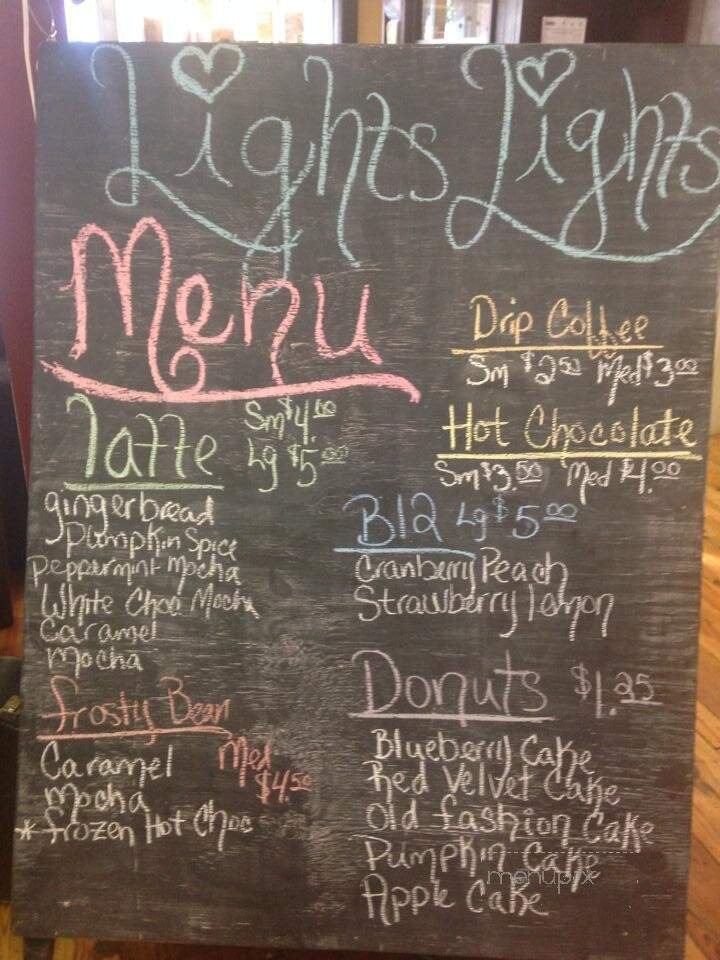 Lights Lights
Menu
Latte Sm $4.00
Lg $5.00
gingerbread
Pumpkin Spice
Peppermint Mocha
White Choc Mocha
Caramel
Mocha
Frosty Bean
Med $4.50
Caramel
Mocha
* Frozen Hot Choc
Drip Coffee
Sm $2.50 Med $3.00
Hot Chocolate
Sm $3.00 Med $4.00
B12 Lg $5.00
Cranberry Peach
Strawberry Lemon
Donuts $1.25
Blueberry Cake
Red Velvet Cake
Old fashion Cake
Pumpkin Cake
Apple Cake
menupix